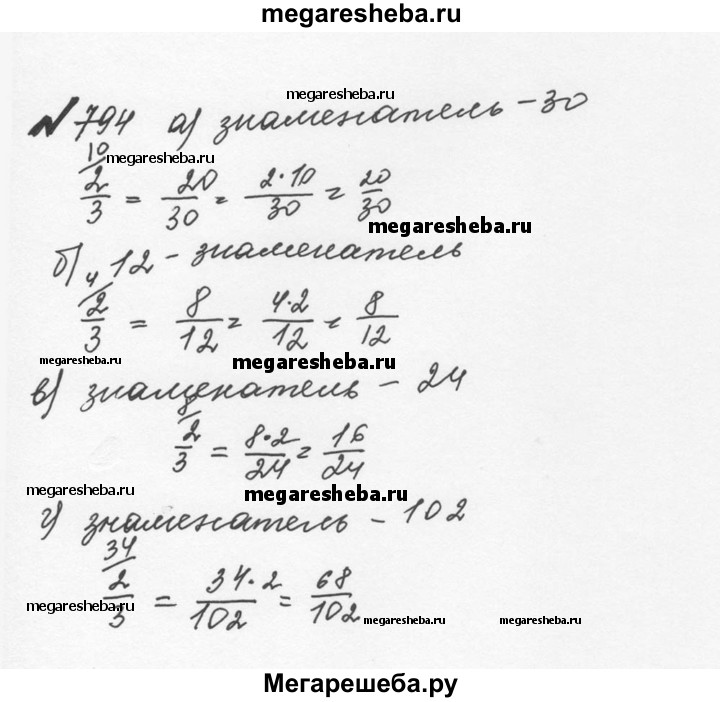 megaresheba.ru
megaresheba.ru
№ 794 а) знаменатель - 30
10
megaresheba.ru
2/3 = 20/30 = 2·10/30 = 20/30
megaresheba.ru
б) 12 - знаменатель
4
2/3 = 8/12 = 4·2/12 = 8/12
megaresheba.ru
megaresheba.ru
в) знаменатель - 24
8
2/3 = 8·2/24 = 16/24
megaresheba.ru
megaresheba.ru
г) знаменатель - 102
34
2/3 = 34·2/102 = 68/102
megaresheba.ru
megaresheba.ru
megaresheba.ru
Мегарешеба.ру